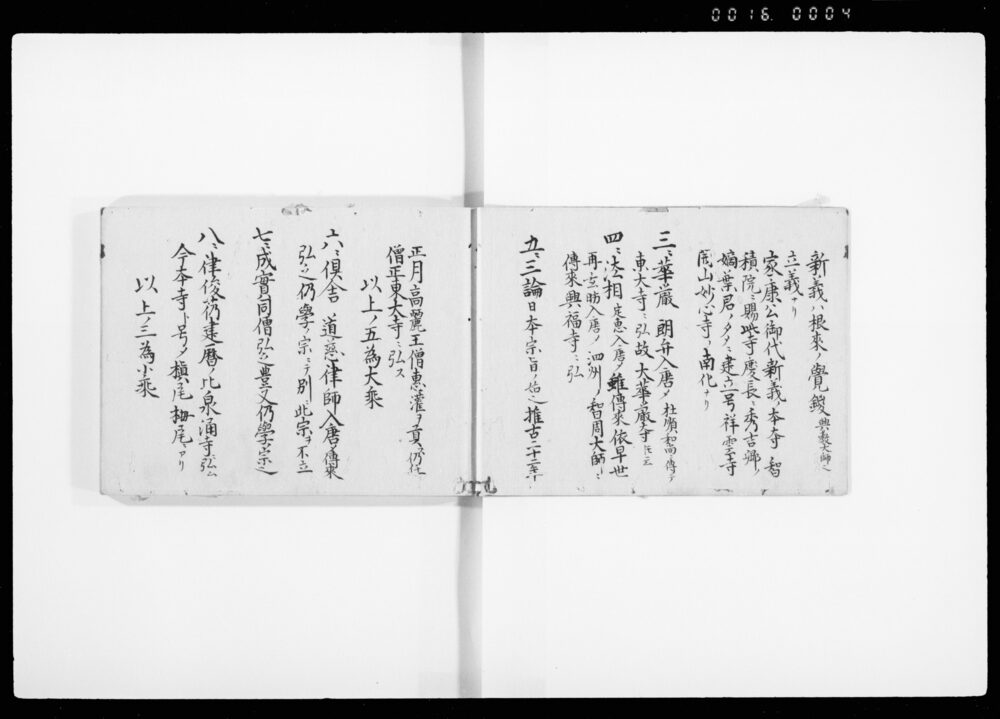 0016 0004
新義ハ根來ノ覺鑁 興教大師也
立義ナリ
家康公御代新義ノ本寺 智
積院ニ賜此寺慶長ニ秀吉郷ノ
嫡葉君ノタメニ建立号祥雲寺
開山妙心寺ノ南化ナリ
三ニ華嚴 朗弁入唐メ 杜順和尚ノ傳テ
東大寺ニ弘故大華嚴寺 ト云
四ニ法相 定恵入唐メ 雖傳來依早世
再玄昉入唐メ 泗洲ノ智周大師ニ
傳來興福寺ニ弘
五ニ三論日本宗旨ノ始也推古三十三年
正月高麗王僧惠灌ヲ貢ク仍任
僧正東大寺ニ弘ス
以上ノ五為大乘
六ニ俱舎 道慈律師入唐傳來
弘之仍學ノ宗ニテ別ニ此宗ヲ不立
七ニ成實同僧弘之豊又仍學宗也
八ニ律俊芿建曆ノ比泉涌寺ニ弘ム
今本寺ト号メ槇尾栂尾ニアリ
以上ノ三為小乘